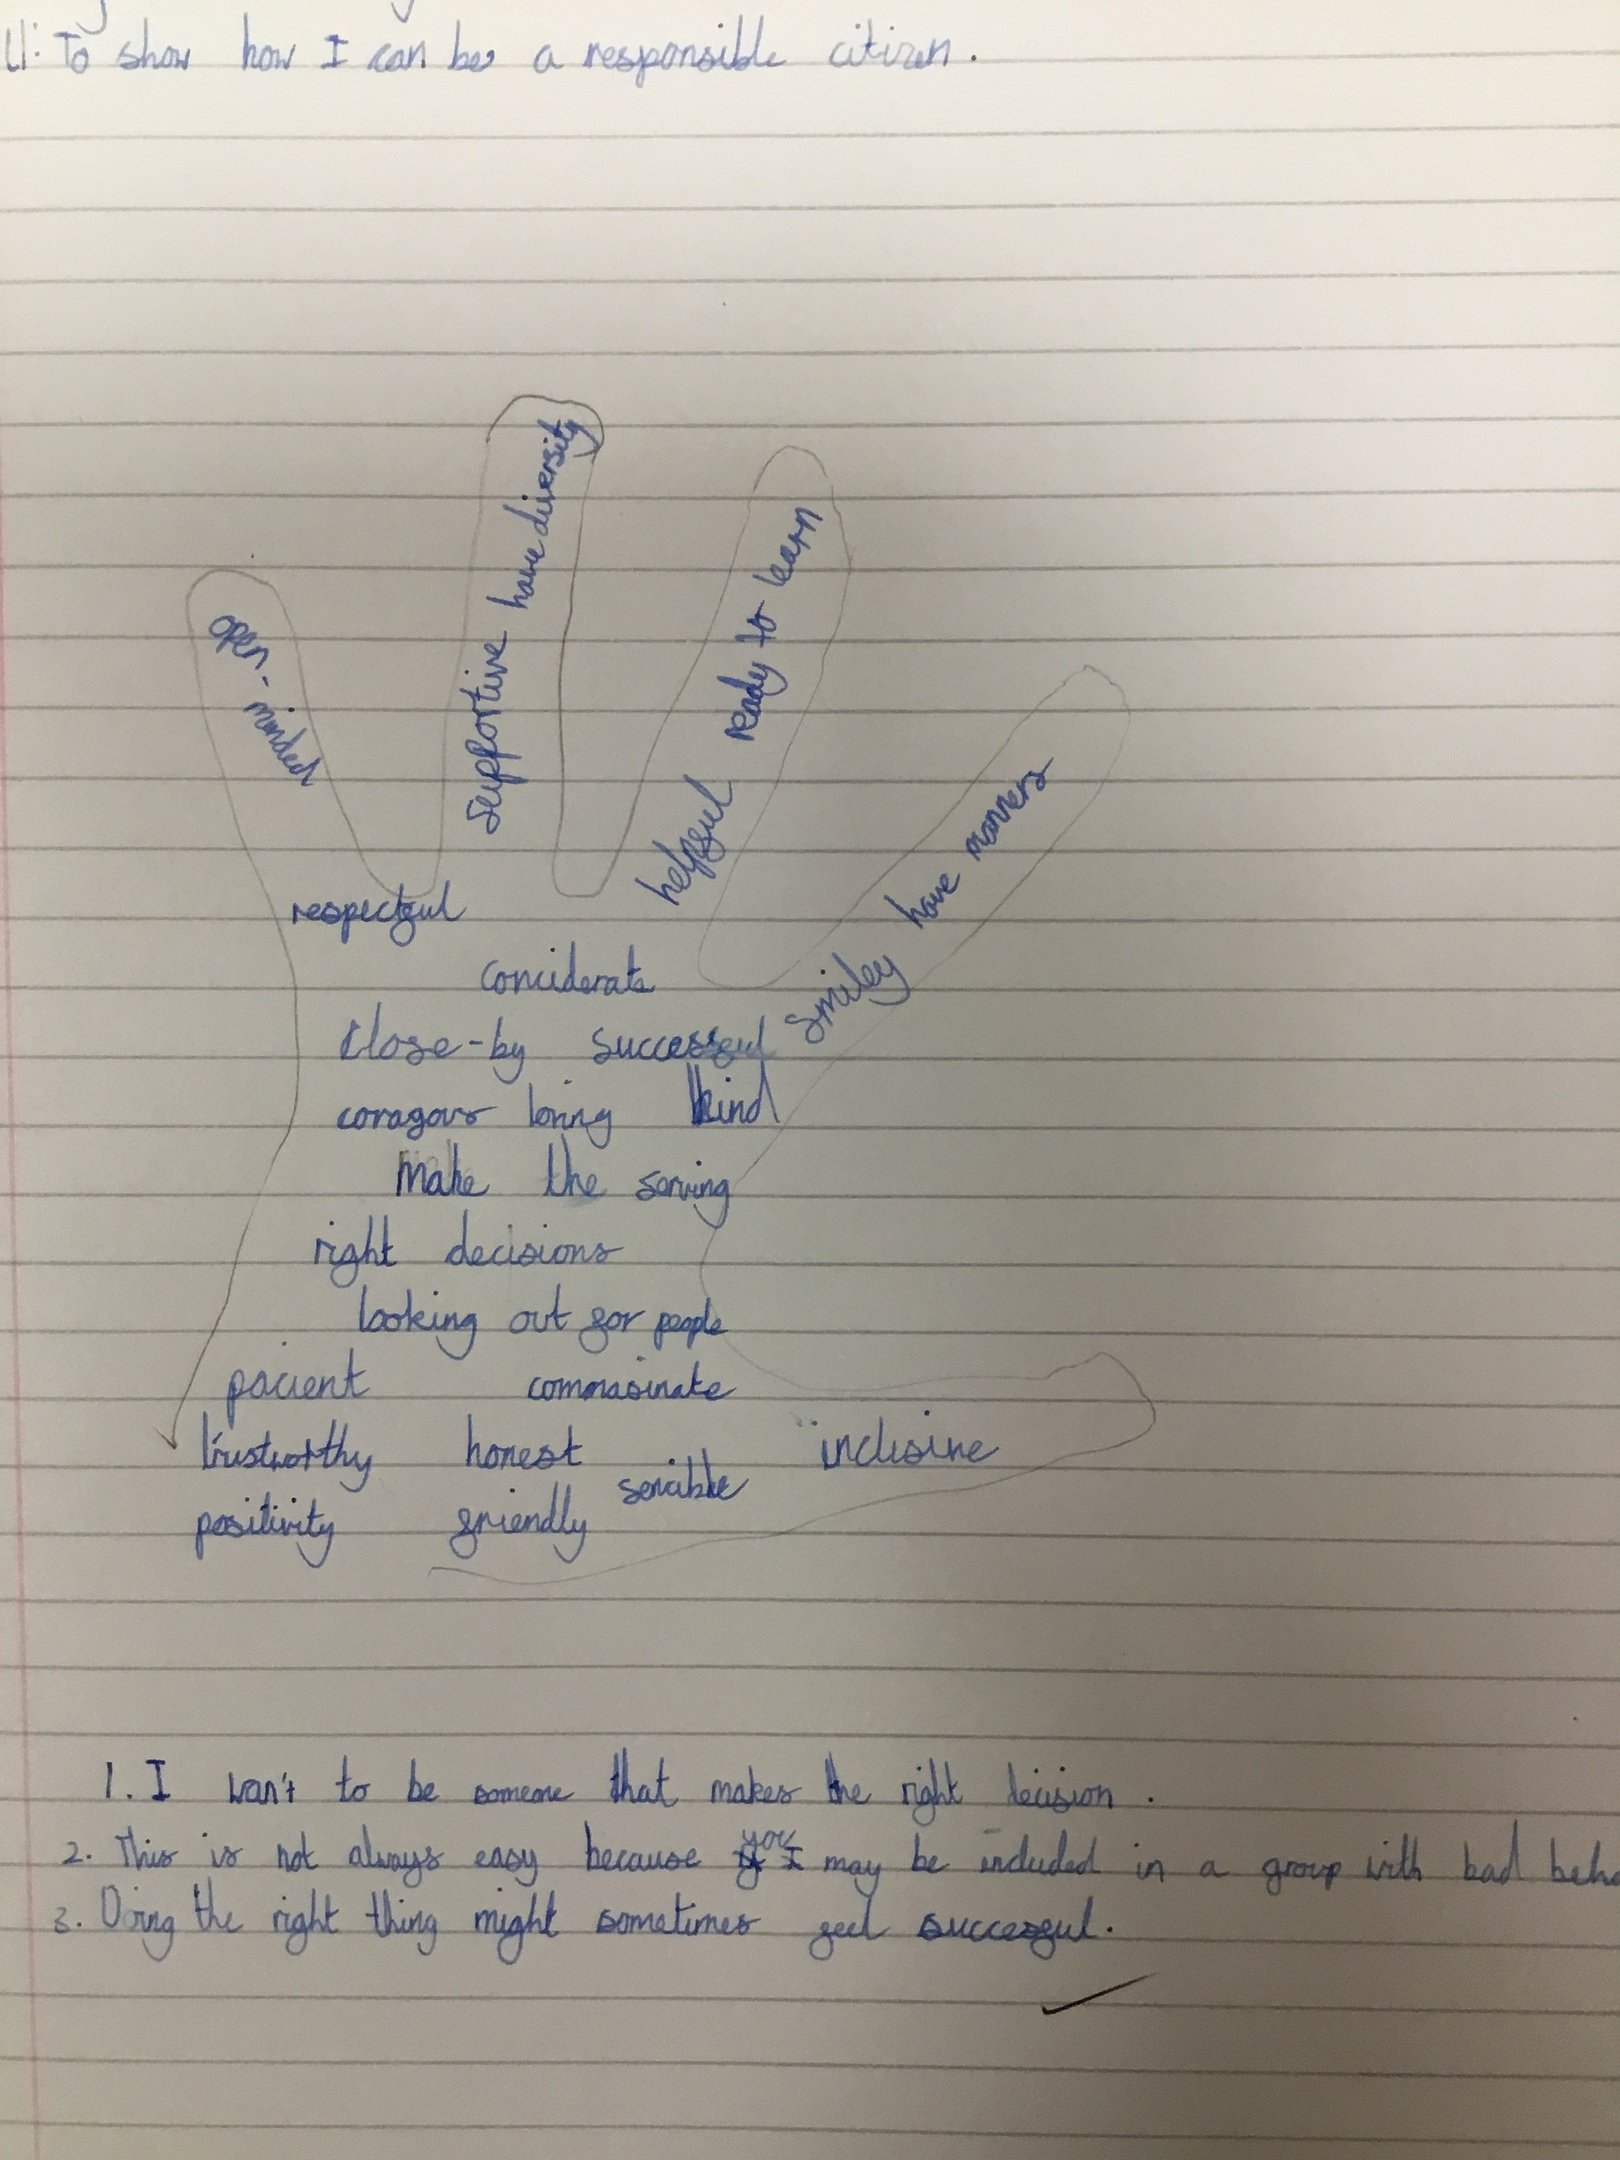 LI: To show how I can be a responsible citizen.
open-minded
supportive have diversity
helpful ready to learn
smiley have manners
respectful
conciderate
close-by successful
coragous loving kind
make the serving
right decisions
looking out for people
pacient commasinate
trustworthy honest inclisive
sencible
positivity friendly
1. I wan't to be someone that makes the right decision.
2. This is not always easy because you may be included in a group with bad beha
3. Doing the right thing might sometimes feel successful.